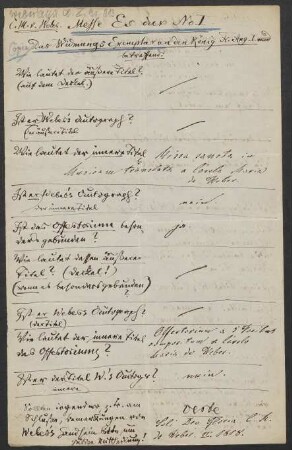 C. M. v. Weber. Messe Es dur No. 1
Das Widmungs-Exemplar an den König Fr. Aug. I. v. S.
betreffend.
Wie lautet der äussere Titel?
(auf dem Deckel.)
Ist er Weber's Autograph?
(der äussere Titel)
Wie lautet der innere Titel?
Missa sancta
a Carlo Maria
de Weber
Ist er Weber's Autograph?
der innere Titel
nein
Ist das Offertorium beson-
ders gebunden?
ja
Wie lautet dessen äusserer
Titel? (Deckel!)
(wenn es besonders gebunden)
?
Ist er Weber's Autograph?
(der Titel)
Wie lautet der innere Titel
des Offertoriums?
Offertorium a
composto da Carlo
Maria de Weber.
Ist er der Titel W's Autogr.?
innere
nein.
irgendwo, z. B. am
Schlusse, Bemerkungen von
Weber's
Soli Deo Gloria. C. M.
de Weber
1818.